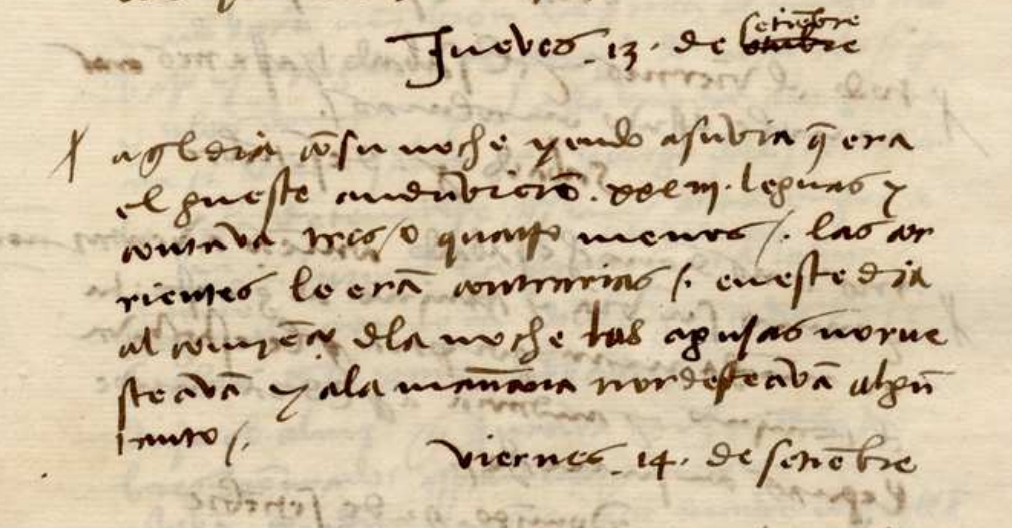 Jueves .13. de setiẽbre
aql dia cõ su noche yendo a su via q̃ era
el gueste anduvierõ .xxxiij. leguas y
contava tres / o quatro menos /. las cor
rientes le erã contrarias /. en este dia
al comiẽço dla noche las agujas norue
steavã y a la mañana nordesteavã algũ
tanto /.
viernes .14. de setiẽbre